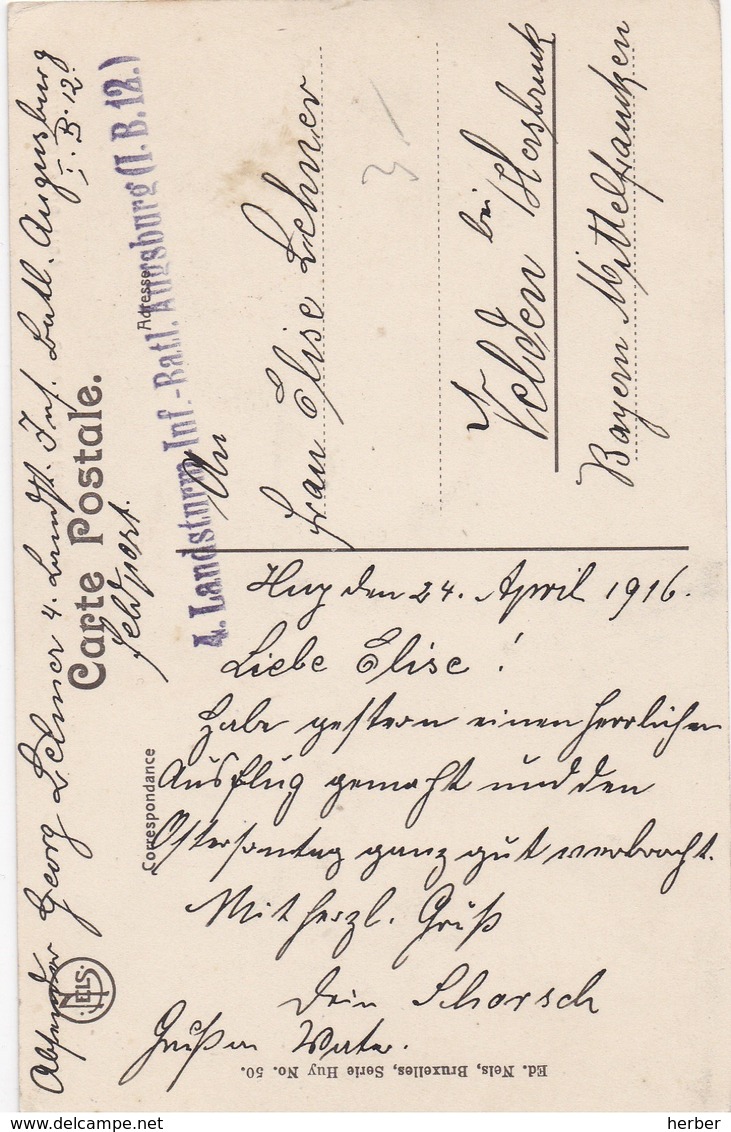 Carte Postale.
Feldpost.
Correspondance
Adresse
Absender Georg Lehner 4. Landst. Inf. Batl. Augsburg
I. B. 12.
4. Landsturm Inf.-Batl. Augsburg (I. B. 12.)
An
Frau Elise Lehner
Velden bei Hersbruck
Bayern Mittelfranken
3
Huy den 24. April 1916.
Liebe Elise!
Habe gestern einen herrlichen
Ausflug gemacht und den
Ostersontag ganz gut verbracht.
Mit herzl. Gruß
Dein Schorsch
Vater.
NELS
Ed. Nels, Bruxelles, Serie Huy No. 50.
herber